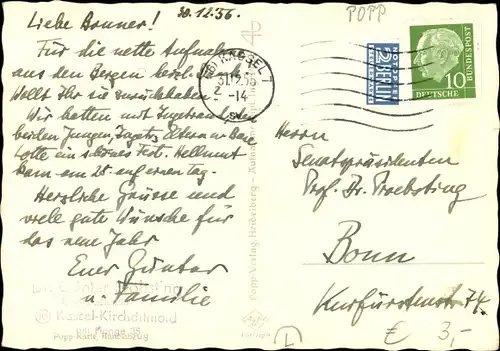 30.12.56.
Liebe Bonner!
Für die nette Aufnahme
aus den Bergen
Wollt Ihr sie zurückhaben?
Wir hatten mit Ingetraud
beiden Jungen, Eltern u.
Lotte ein schönes Fest. Hellmut
kam am 25. auf einen Tag.
Herzliche Grüsse und
viele gute Wünsche für
das neue Jahr
Euer Günter
u. Familie
Kassel-Kirchditmold
Popp-Karte,
Popp-Verlag, Heidelberg
POPP
KASSEL 7
31.12.56
-14
NOTOPFER
2 BERLIN
STEUERMARKE
10
DEUTSCHE
BUNDESPOST
Herrn
Senatspräsidenten
Prof. Dr. Proebsting
Bonn
Kurfürstenstr. 74.
€ 3,-